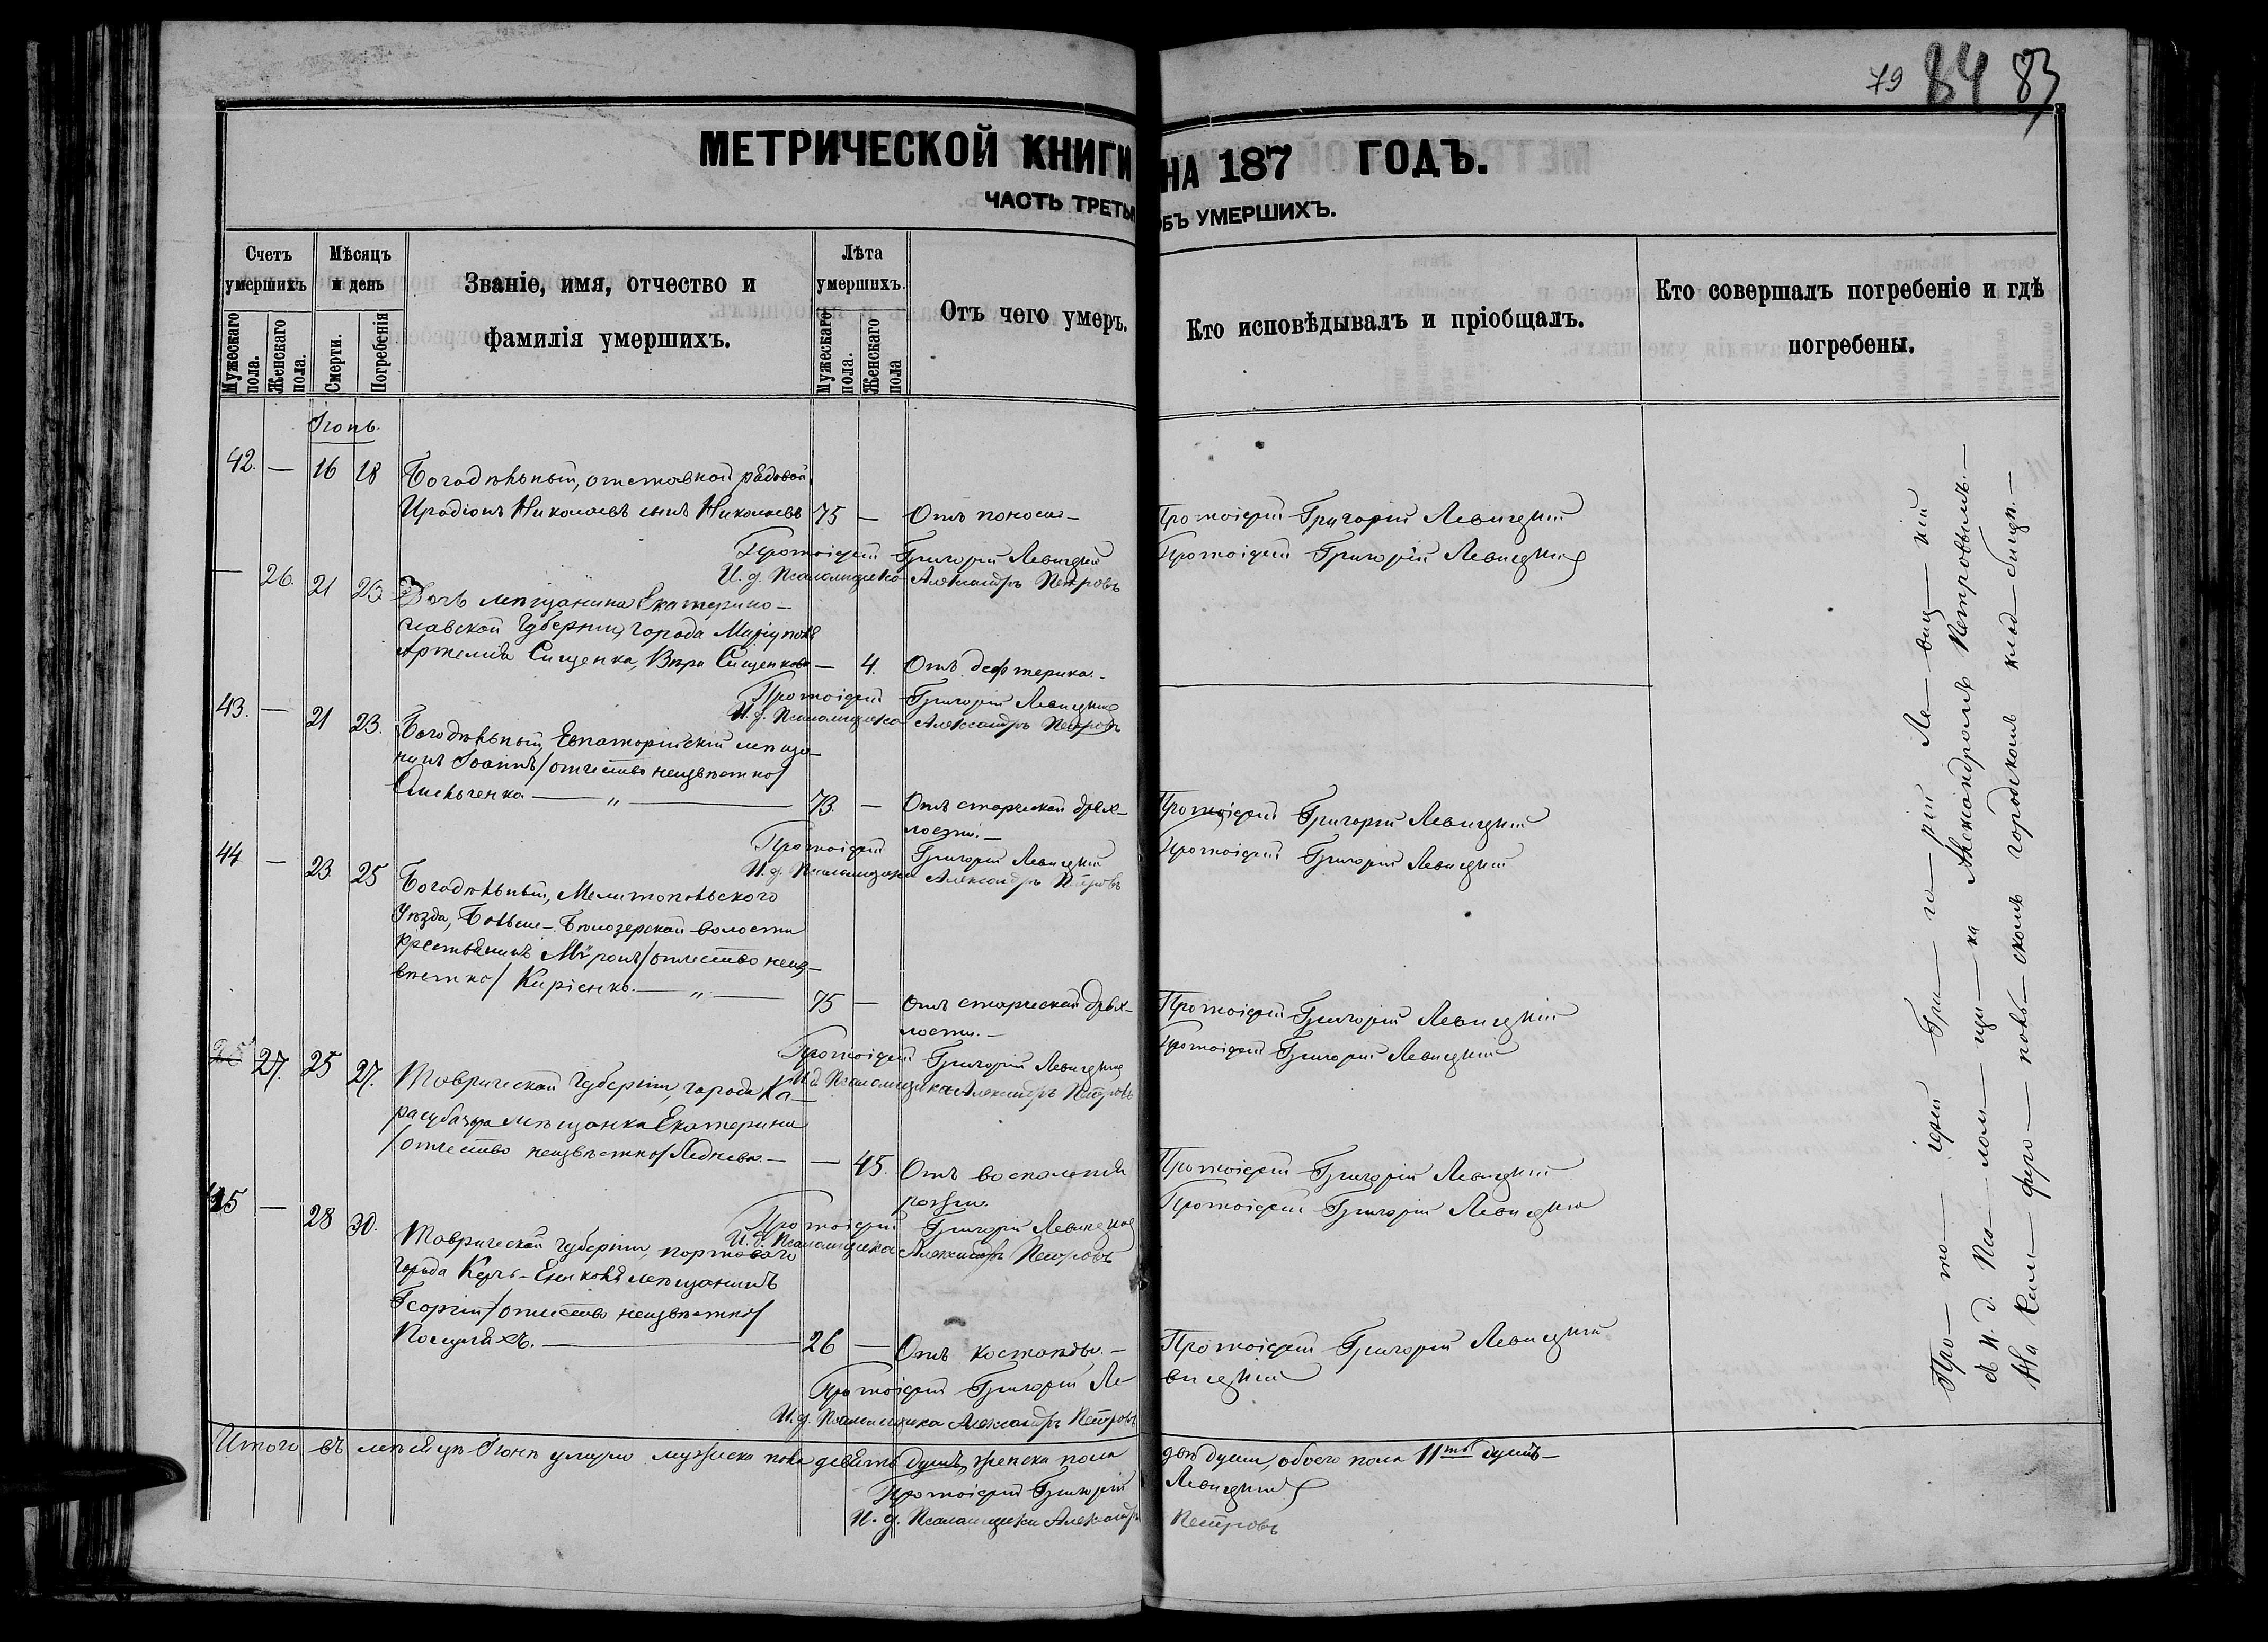 79 84 83
МЕТРИЧЕСКОЙ КНИГИ НА 187 ГОДЪ.
ЧАСТЬ ТРЕТЬЯ ОБЪ УМЕРШИХЪ.
Счетъ умершихъ
Мужескаго пола.
Женскаго пола.
Мѣсяцъ и день
Смерти.
Погребенія
Званіе, имя, отчество и
фамилія умершихъ.
Лѣта умершихъ.
Мужескаго пола.
Женскаго пола
Отъ чего умеръ.
Кто исповѣдывалъ и пріобщалъ.
Кто совершалъ погребеніе и гдѣ
погребены.
Іюнь.
42. — 16 18 Богадѣльный, отставной рядовой
Иродіонъ Николаевъ сынъ Николаевъ 75 — Отъ поноса — Протоіерей Григорій Левицкій
Протоіерей Григорій Левицкій Протоіерей Григорій Левицкій
И. д. Псаломщика Александръ Петровъ
— 26. 21 23 Дочь мѣщанина Екатерино-
славской Губерніи, города Маріуполя
Артемія Сищенка, Вѣра Сищенкова — 4. Отъ дефтерика. —
Протоіерей Григорій Левицкій
И. д. Псаломщика Александръ Петровъ
43. — 21 23. Богадѣльный, Евпаторійскій мѣща-
нинъ Іоаннъ /отчество неизвѣстно/
— „ — 73. — Отъ старческой дрях- Протоіерей Григорій Левицкій
лости. —
Протоіерей Григорій Левицкій Протоіерей Григорій Левицкій
И. д. Псаломщика Александръ Петровъ
44 — 23 25 Богадѣльный, Мелитопольскаго
Уѣзда, Больше-Бѣлозерской волости
крестьянинъ Мѵронъ /отчество неиз-
вѣстно/ Кирієнко. — „ — 75 — Отъ старческой дрях- Протоіерей Григорій Левицкій
лости. —
Протоіерей Григорій Левицкій Протоіерей Григорій Левицкій
И. д. Псаломщика Александръ Петровъ
27. 25 27. Таврической Губерніи, города Ка-
расубазара мѣщанка Екатерина
/отчество неизвѣстно/ Леднева. — — 45. Отъ воспаленія Протоіерей Григорій Левицкій
рожи.
Протоіерей Григорій Левицкій Протоіерей Григорій Левицкій
И. д. Псаломщика Александръ Петровъ
45 — 28 30. Таврической Губерніи, портоваго
города Керчь-Еникаля мѣщанинъ
Георгій /отчество неизвѣстно/
— 26 — Отъ костоѣды. — Протоіерей Григорій Левицкій
Протоіерей Григорій Левицкій
И. д. Псаломщика Александръ Петровъ
Итого въ мѣсяцѣ Іюнѣ умерло мужеска пола девять душъ, женска пола двѣ души, обоего пола 11ть душъ —
Протоіерей Григорій Левицкій
И. д. Псаломщика Александръ Петровъ
Про — то — іерей Гри — го — рій Ле — виц — кій
съ И. д. Пса — лом — щи — ка Александромъ Петровымъ. —
На Сим — феро — поль — скомъ городскомъ клад — бищѣ. —